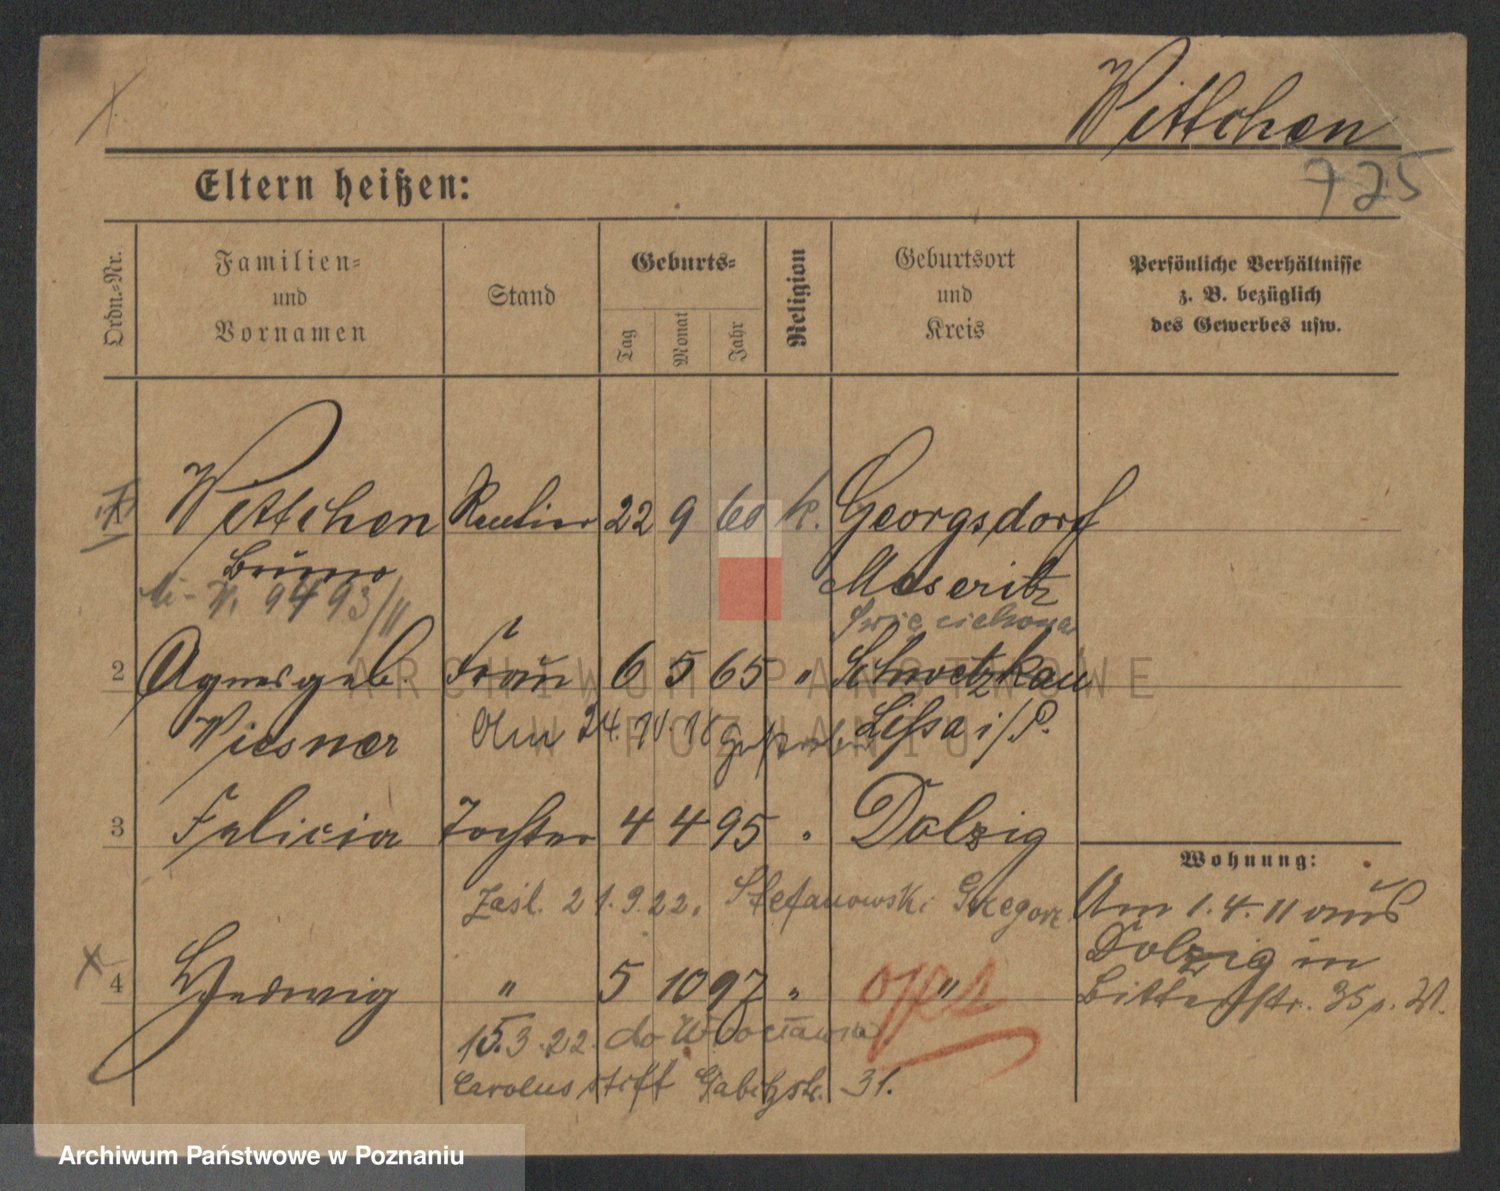 Wittchen
725
Eltern heißen:
Ordn.-Nr.
Familien- und Vornamen
Stand
Geburts-
Tag
Monat
Jahr
Religion
Geburtsort und Kreis
Persönliche Verhältnisse
z. B. bezüglich
des Gewerbes usw.
1 Wittchen Rentier 22 9 60 k. Georgsdorf
Bruno Meseritz
9493/11 Święciechowa
2 Agnes geb Frau 6 5 65 " Schwetzkau
Wiesner Lissa i/P.
3 Felicia Tochter 4 4 95 " Dolzig
Wohnung:
Zaśl. 21.9.22. Stefanowski Grzegorz
Am 1.4.11 aus
Dolzig in
Bitterstr. 35 p. W.
4 Hedwig " 5 10 97 " "
15.3.22. do Wrocławia
Carolusstift Gabitzstr. 31.
ARCHIWUM PAŃSTWOWE
W POZNANIU
Archiwum Państwowe w Poznaniu